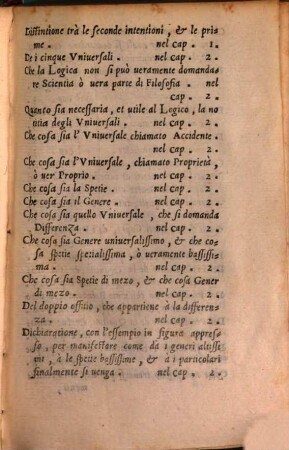 Distintione trà le seconde intentioni, & le pri
me. nel cap. 1.
De i cinque Vniuersali. nel cap. 2.
Che la Logica non si può ueramente domanda-
re Scientia ò uera parte di Filosofia. nel
cap. 2.
Quanto sia necessaria, et utile al Logico, la no
titia degli Vniuersali. nel cap. 2.
Che cosa sia l'Vniuersale chiamato Accidente.
nel cap. 2.
Che cosa sia l'Vniuersale, chiamato Proprietà,
ò uer Proprio. nel cap. 2.
Che cosa sia la Spetie. nel cap. 2.
Che cosa sia il Genere. nel cap. 2.
Che cosa sia quello Vniuersale, che si domanda
Differenza. nel cap. 2.
Che cosa sia Genere uniuersalissimo, & che co-
sa spetie spetialissima, ò ueramente bassissi-
ma. nel cap. 2.
Che cosa sia Spetie di mezo, & che cosa Gener
di mezo. nel cap. 2.
Del doppio offitio, che appartiene à la differen
za. nel cap. 2.
Dichiaratione, con l'essempio in figura appres-
so, per manifestare come da i generi altissi
mi, à le spetie bassissime, & à i particolari
finalmente si uenga. nel cap. 2.